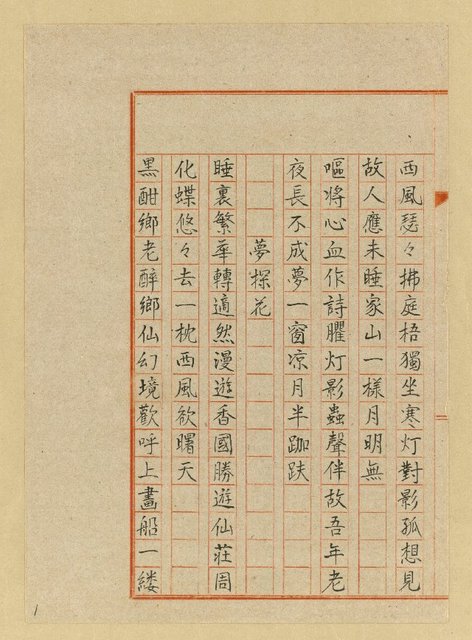 西風瑟々拂庭梧獨坐寒灯對影孤想見
故人應未睡家山一樣月明無
嘔將心血作詩臞灯影蟲聲伴故吾年老
夜長不成夢一窗凉月半跏趺
夢探花
睡裏繁華轉適然漫遊香國勝遊仙莊周
化蝶悠々去一枕西風欲曙天
黑酣鄉老醉鄉仙幻境歡呼上畫船一縷
1